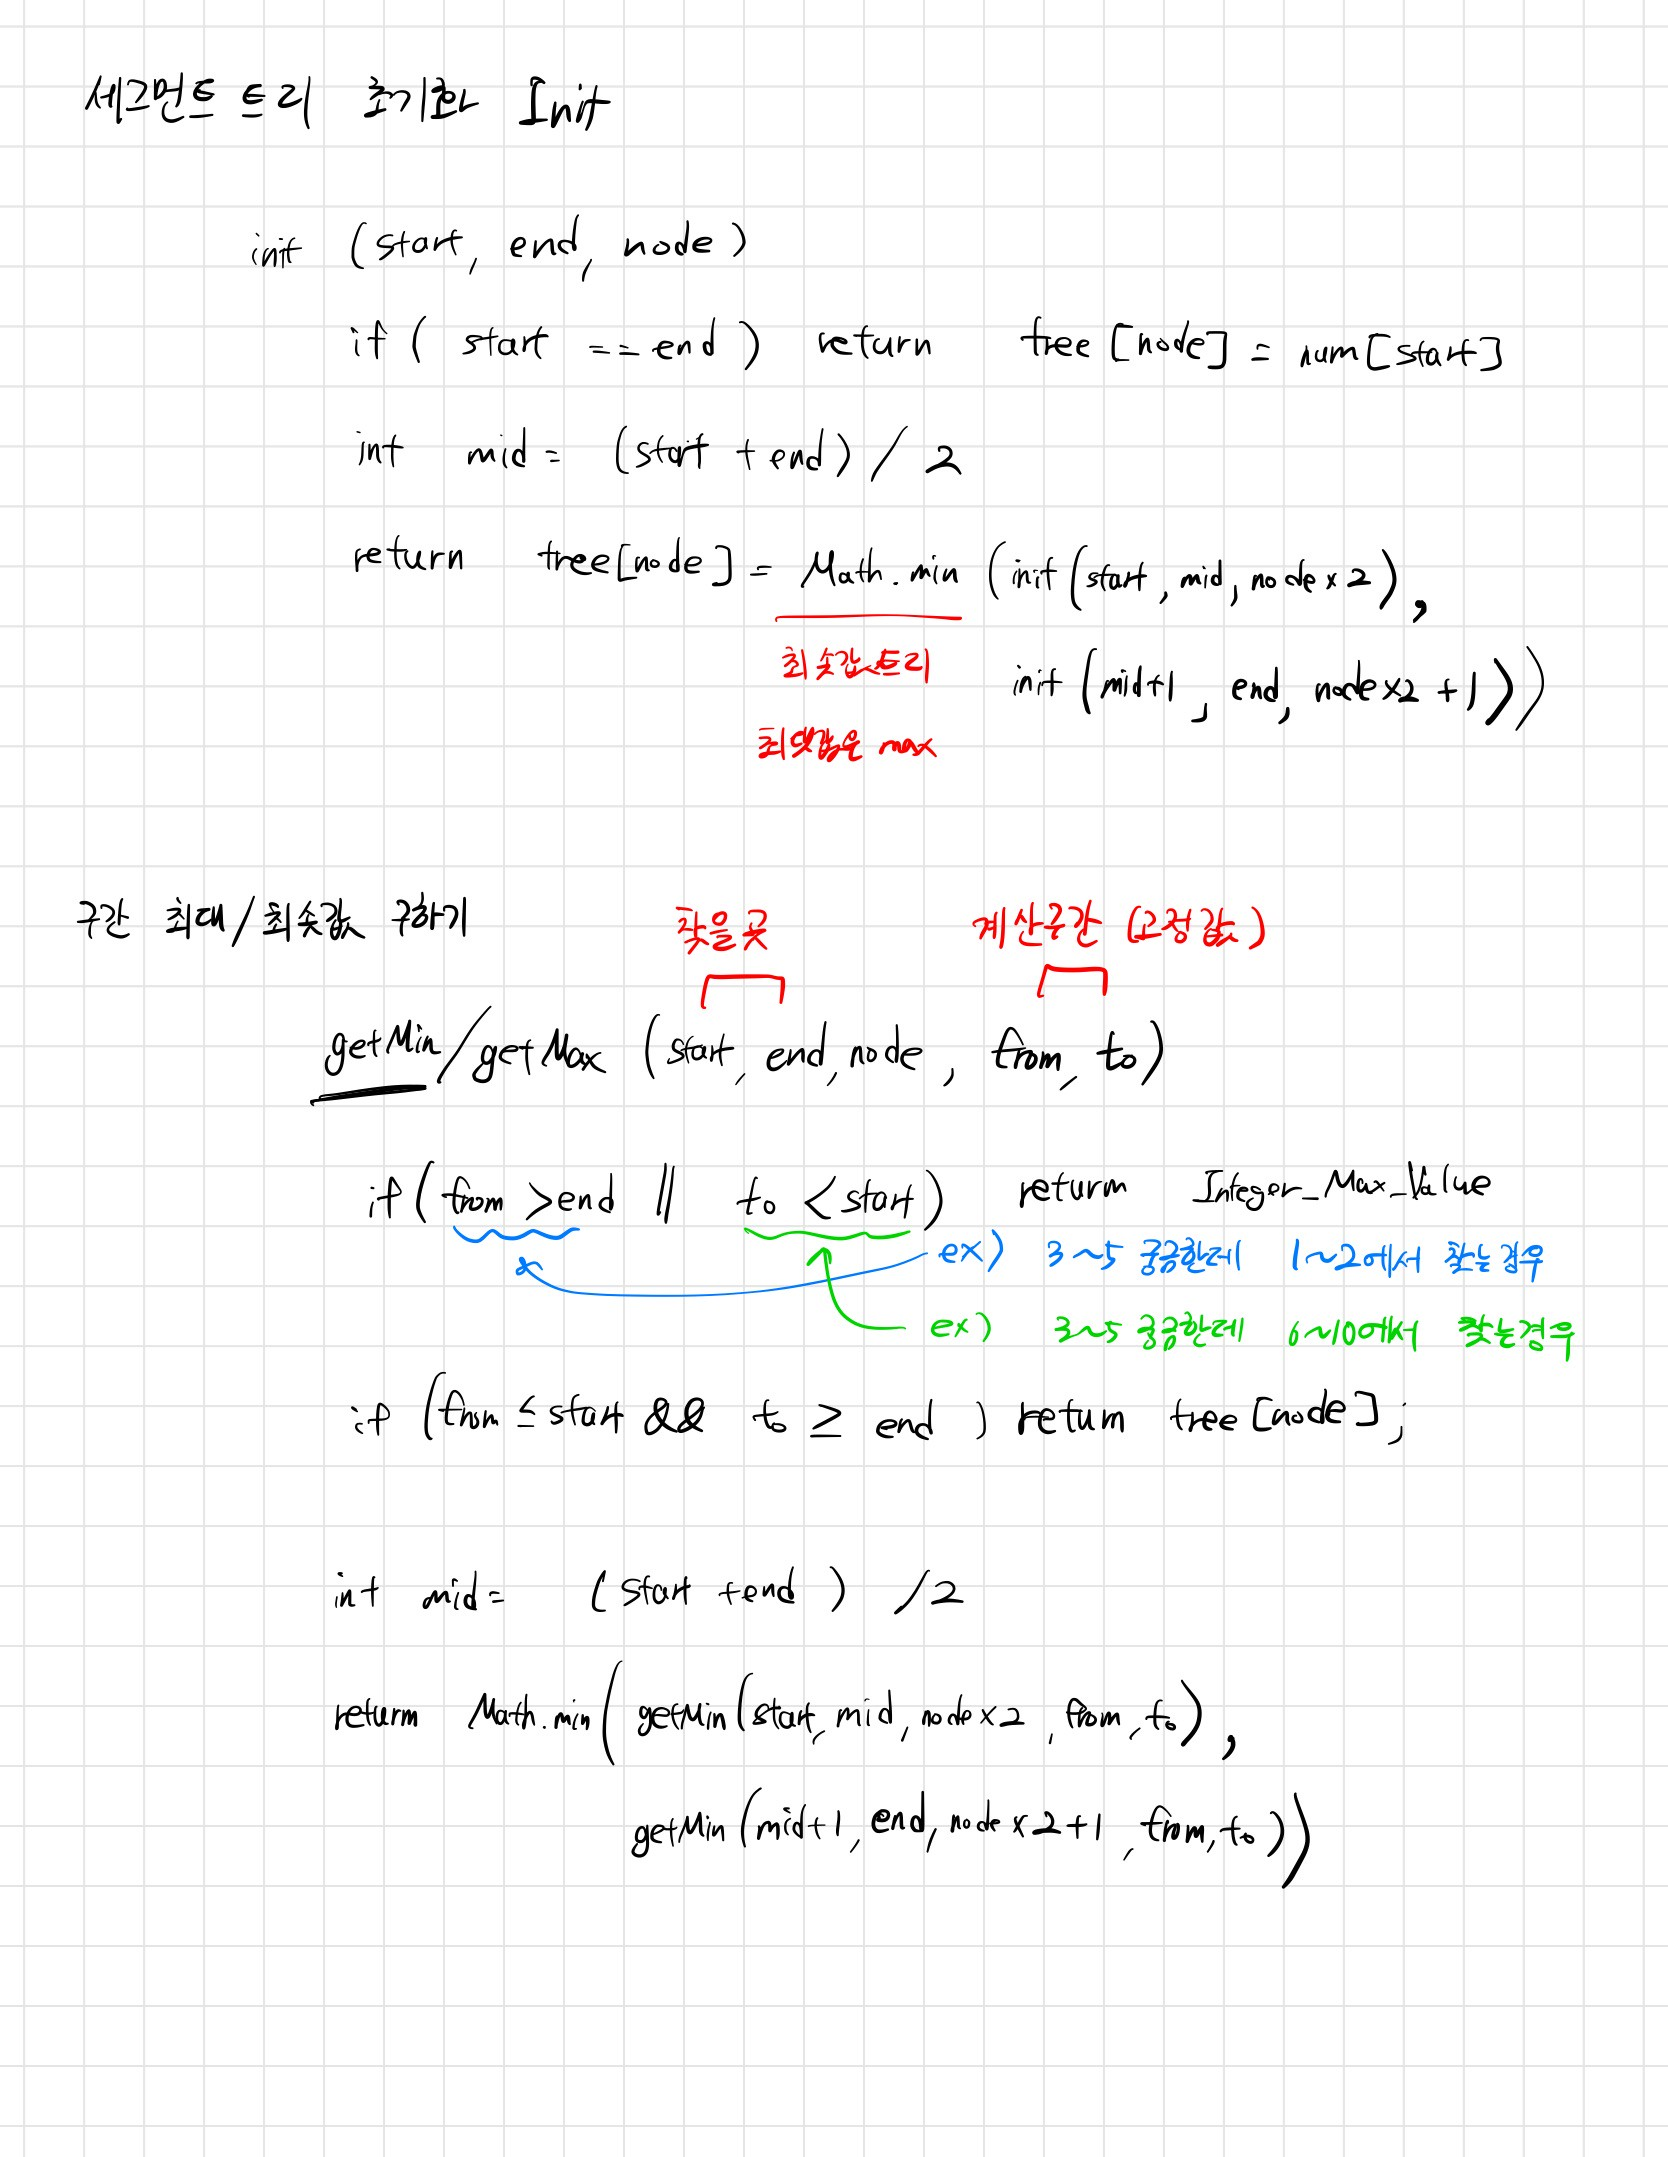 세그먼트 트리 초기화 Init
init (start, end, node)
if ( start == end ) return tree [node] = num[start]
int mid = (start + end) / 2
return tree[node] = Math.min (init(start, mid, node×2),
최솟값 트리
init (mid+1, end, node×2 +1))
최댓값은 max
구간 최대/최솟값 구하기
찾을 곳 계산구간 (고정값)
getMin/getMax (start, end, node, from, to)
if (from > end || to < start) return Integer_Max_Value
ex) 3~5 궁금한데 1~2에서 찾는 경우
ex) 3~5 궁금한데 6~10에서 찾는경우
if (from ≤ start && to ≥ end ) return tree [node];
int mid = (start +end) /2
return Math.min( getMin(start, mid, node×2, from, to),
getMin (mid+1, end, node×2+1, from, to))